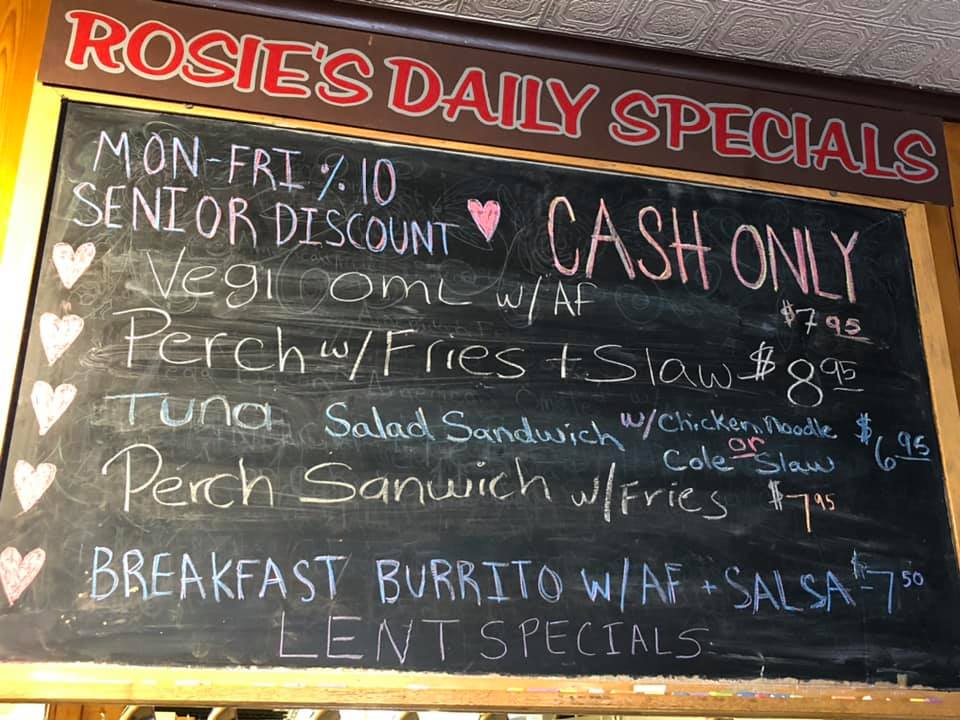 ROSIE'S DAILY SPECIALS
MON-FRI % 10
SENIOR DISCOUNT
CASH ONLY
Vegi OML w/AF $7 95
Perch w/Fries + Slaw $8 95
Tuna Salad Sandwich w/Chicken Noodle $6 95
or
Cole Slaw
Perch Sanwich w/Fries $7 95
BREAKFAST BURRITO W/AF + SALSA $7 50
LENT SPECIALS